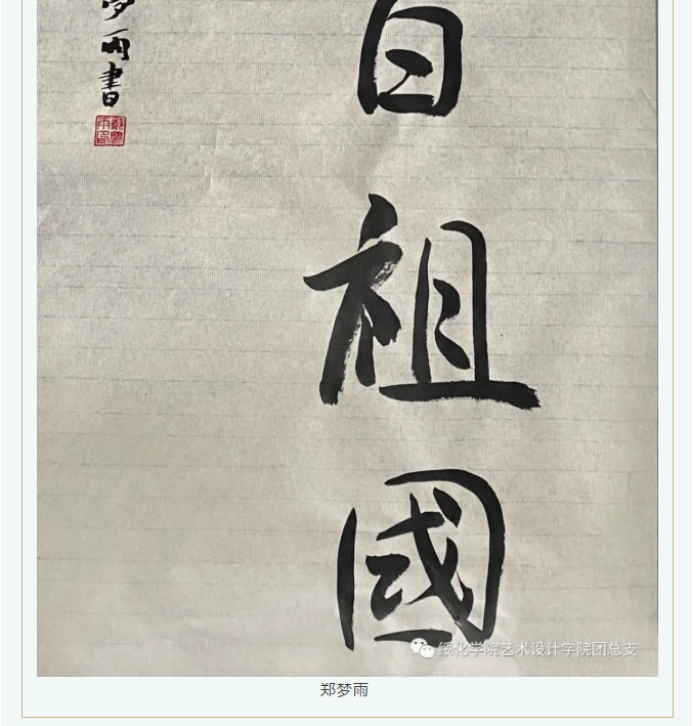 日祖國
雨書
绥化学院艺术设计学院团总支
郑梦雨